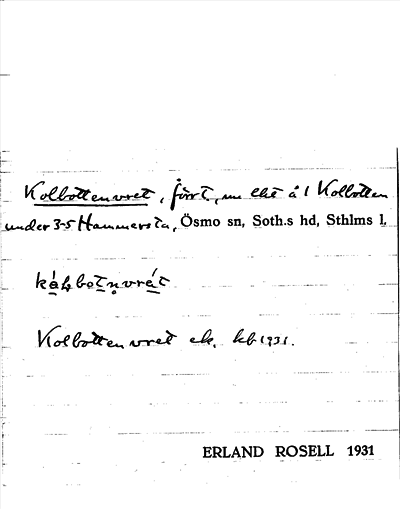 Kolbottenvret, förr t., nu åker å 1 Kolbotten
under 3-5 Hammersta, Ösmo sn, Soth.s hd, Sthlms l.
Kolbottenvret ek. kb 1931.
ERLAND ROSELL 1931